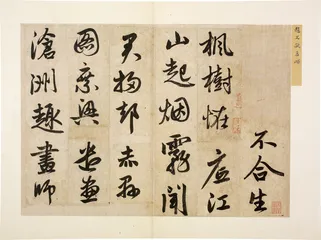 不合生
楓樹恠底江
山起烟霧聞
君掃却赤縣
圖乘興遣畫
滄洲趣畫師